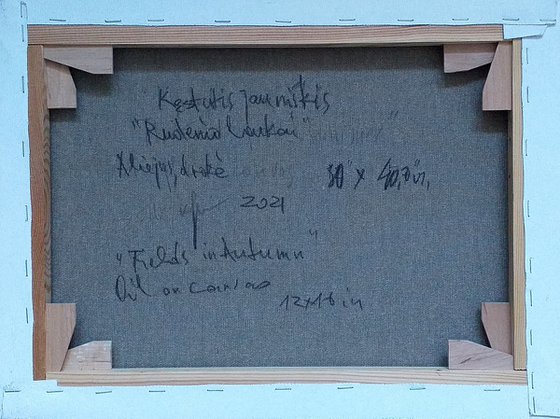 Kęstutis Jauniškis
"Rudenio laukai"
Aliejus, drobė 30 x 40,0 in,
2021
"Fields in Autumn"
Oil on canvas
12x16 in